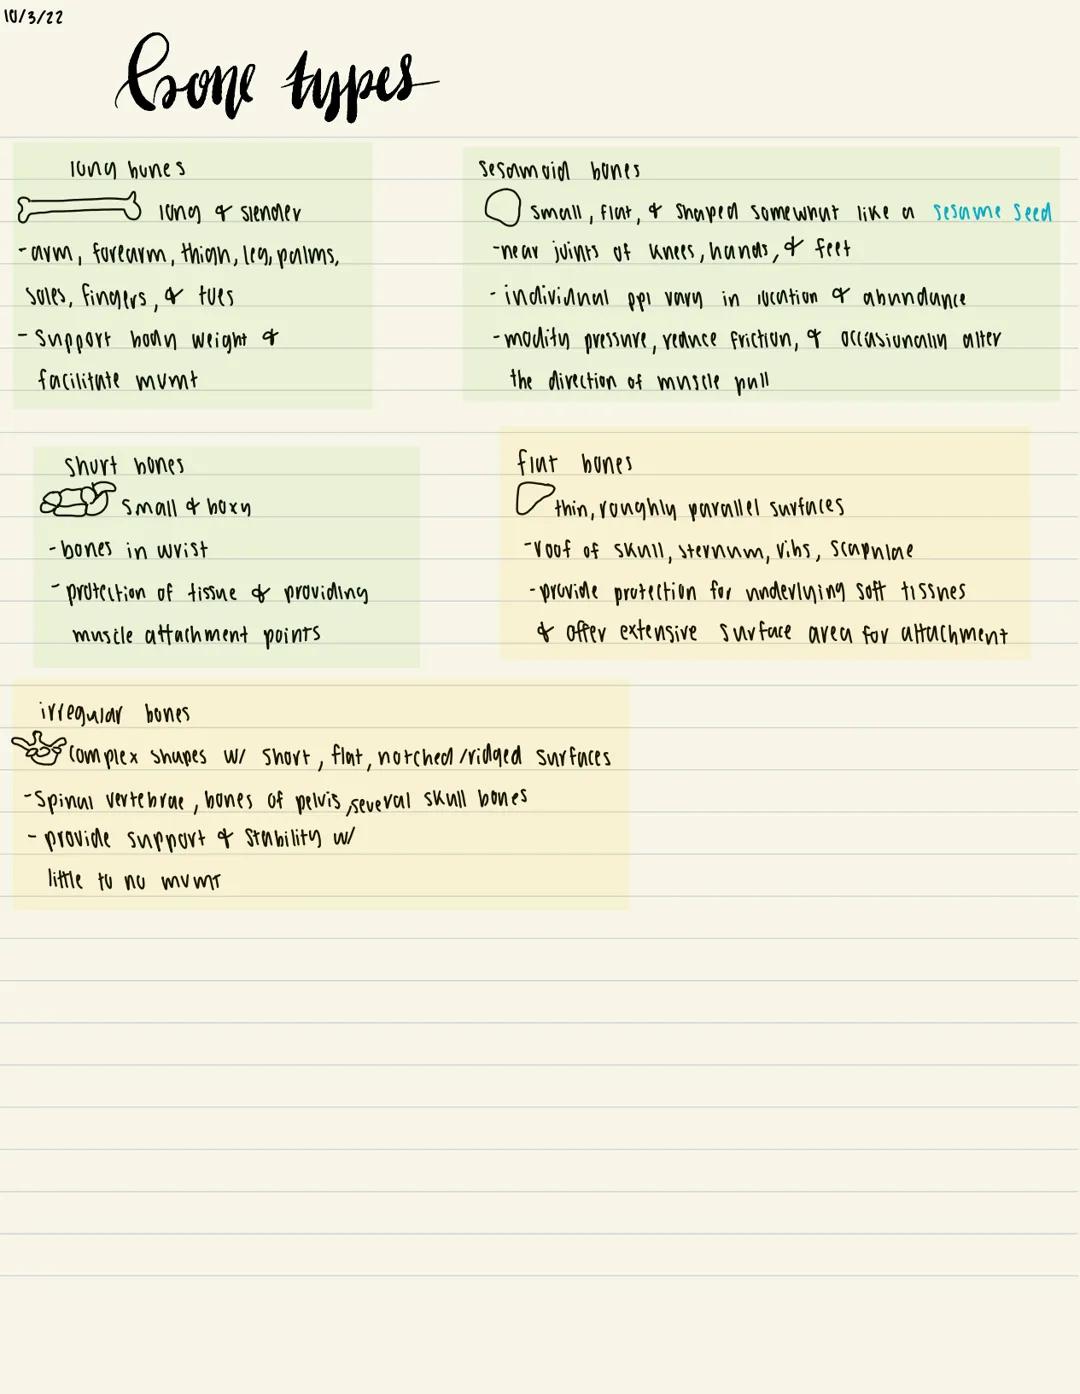 10/3/22
bone types
long bones
long & slender
- arm, forearm, thigh, leg, palms,
soles, fingers, & toes
- support body weight &
facilitate mvmt
sesamoid bones
small, flat, & shaped somewhat like a sesame seed
- near joints of knees, hands, & feet
- individual ppl vary in location & abundance
- modify pressure, reduce friction, & occasionally alter
the direction of muscle pull
short bones
small & boxy
- bones in wrist
- protection of tissue & providing
muscle attachment points
flat bones
thin, roughly parallel surfaces
- roof of skull, sternum, ribs, scapulae
- provide protection for underlying soft tissues
& offer extensive surface area for attachment
irregular bones
complex shapes w/ short, flat, notched/ridged surfaces
- spinal vertebrae, bones of pelvis, several skull bones
- provide support & stability w/
little to no mvmt